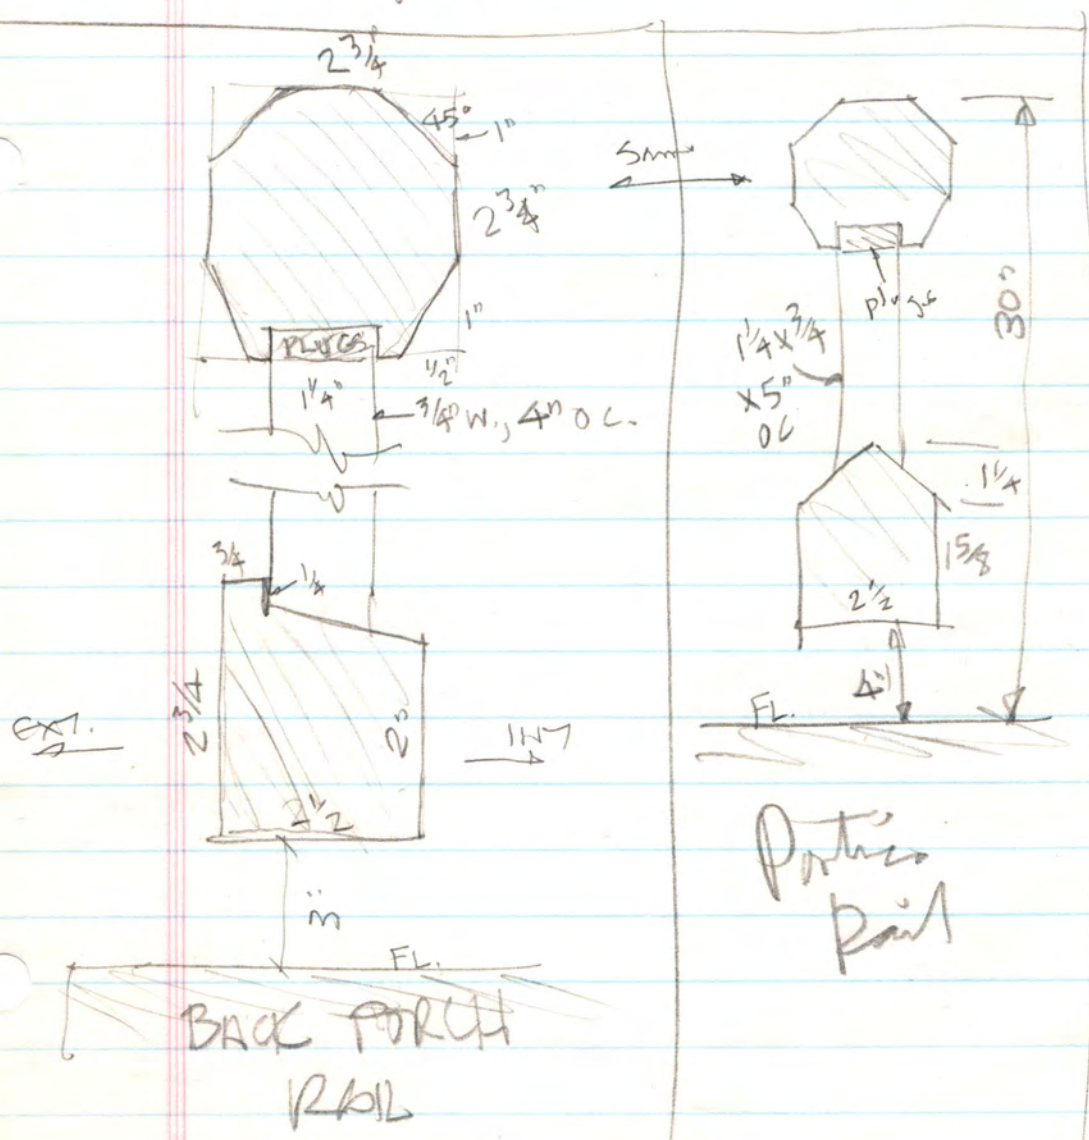 2 3/4"
45°
1"
2 3/4"
1"
PLUGS
1/2"
1 1/4"
3/4" W., 4" OC.
3/4
1/4
2 3/4
2"
2 1/2
EXT.
INT
3"
FL.
BACK PORCH
RAIL
Same
plugs
30"
1 1/4 X 3/4
X 5"
OC
1 1/4
1 5/8
2 1/2
4"
FL.
Portico
Rail